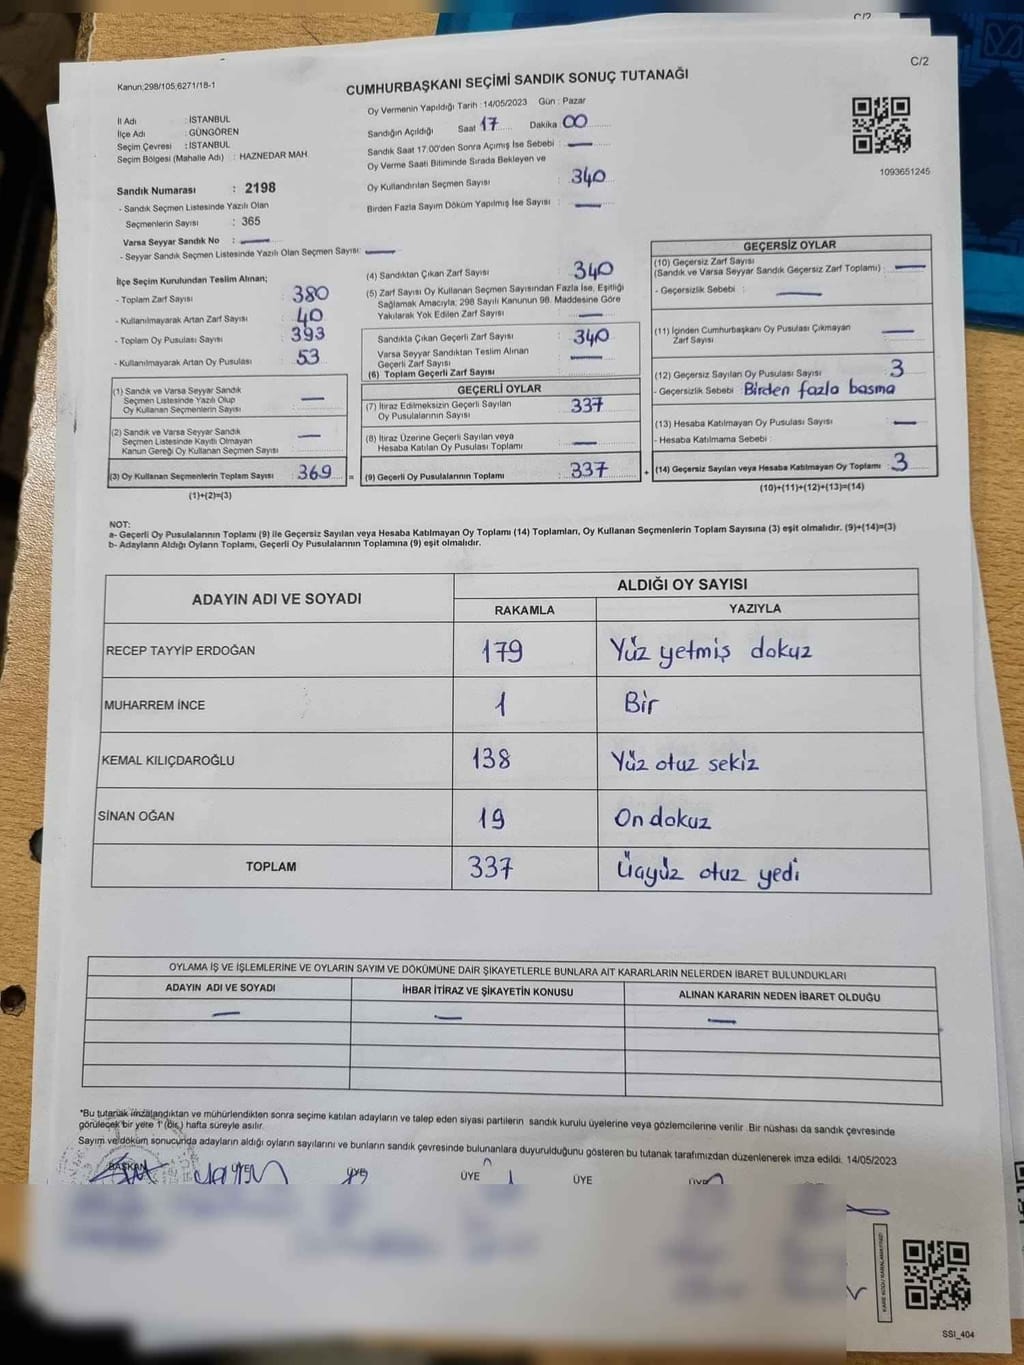 C/2
C/2
Kanun;298/105,6271/18-1
CUMHURBAŞKANI SEÇİMİ SANDIK SONUÇ TUTANAĞI
İl Adı : İSTANBUL
İlçe Adı : GÜNGÖREN
Seçim Çevresi : İSTANBUL
Seçim Bölgesi (Mahalle Adı) : HAZNEDAR MAH.
Sandık Numarası : 2198
- Sandık Seçmen Listesinde Yazılı Olan
Seçmenlerin Sayısı : 365
Varsa Seyyar Sandık No : —
- Seyyar Sandık Seçmen Listesinde Yazılı Olan Seçmen Sayısı: —
Oy Vermenin Yapıldığı Tarih : 14/05/2023 Gün : Pazar
Sandığın Açıldığı Saat 17 Dakika 00
Sandık Saat 17.00'den Sonra Açımış İse Sebebi : —
Oy Verme Saati Bitiminde Sırada Bekleyen ve
Oy Kullandırılan Seçmen Sayısı : 340
Birden Fazla Sayım Döküm Yapılmış İse Sayısı : —
1093651245
İlçe Seçim Kurulundan Teslim Alınan;
- Toplam Zarf Sayısı : 380
- Kullanılmayarak Artan Zarf Sayısı : 40
- Toplam Oy Pusulası Sayısı : 393
- Kullanılmayarak Artan Oy Pusulası : 53
(1) Sandık ve Varsa Seyyar Sandık
Seçmen Listesinde Yazılı Olup
Oy Kullanan Seçmenlerin Sayısı : —
(2) Sandık ve Varsa Seyyar Sandık
Seçmen Listesinde Kayıtlı Olmayan
Kanun Gereği Oy Kullanan Seçmen Sayısı : —
(3) Oy Kullanan Seçmenlerin Toplam Sayısı : 369 =
(1)+(2)=(3)
(4) Sandıktan Çıkan Zarf Sayısı : 340
(5) Zarf Sayısı Oy Kullanan Seçmen Sayısından Fazla İse, Eşitliği
Sağlamak Amacıyla; 298 Sayılı Kanunun 98. Maddesine Göre
Yakılarak Yok Edilen Zarf Sayısı : —
Sandıkta Çıkan Geçerli Zarf Sayısı : 340
Varsa Seyyar Sandıktan Teslim Alınan
Geçerli Zarf Sayısı : —
(6) Toplam Geçerli Zarf Sayısı
GEÇERLİ OYLAR
(7) İtiraz Edilmeksizin Geçerli Sayılan
Oy Pusulalarının Sayısı : 337
(8) İtiraz Üzerine Geçerli Sayılan veya
Hesaba Katılan Oy Pusulası Toplamı : —
(9) Geçerli Oy Pusulalarının Toplamı : 337 +
GEÇERSİZ OYLAR
(10) Geçersiz Zarf Sayısı
(Sandık ve Varsa Seyyar Sandık Geçersiz Zarf Toplamı) : —
- Geçersizlik Sebebi : —
(11) İçinden Cumhurbaşkanı Oy Pusulası Çıkmayan
Zarf Sayısı : —
(12) Geçersiz Sayılan Oy Pusulası Sayısı : 3
- Geçersizlik Sebebi : Birden fazla basma
(13) Hesaba Katılmayan Oy Pusulası Sayısı : —
- Hesaba Katılmama Sebebi :
(14) Geçersiz Sayılan veya Hesaba Katılmayan Oy Toplamı : 3
(10)+(11)+(12)+(13)=(14)
NOT:
a- Geçerli Oy Pusulalarının Toplamı (9) ile Geçersiz Sayılan veya Hesaba Katılmayan Oy Toplamı (14) Toplamları, Oy Kullanan Seçmenlerin Toplam Sayısına (3) eşit olmalıdır. (9)+(14)=(3)
b- Adayların Aldığı Oyların Toplamı, Geçerli Oy Pusulalarının Toplamına (9) eşit olmalıdır.
ADAYIN ADI VE SOYADI
ALDIĞI OY SAYISI
RAKAMLA YAZIYLA
RECEP TAYYİP ERDOĞAN 179 Yüz yetmiş dokuz
MUHARREM İNCE 1 Bir
KEMAL KILIÇDAROĞLU 138 Yüz otuz sekiz
SİNAN OĞAN 19 On dokuz
TOPLAM 337 Üçyüz otuz yedi
OYLAMA İŞ VE İŞLEMLERİNE VE OYLARIN SAYIM VE DÖKÜMÜNE DAİR ŞİKAYETLERLE BUNLARA AİT KARARLARIN NELERDEN İBARET BULUNDUKLARI
ADAYIN ADI VE SOYADI İHBAR İTİRAZ VE ŞİKAYETİN KONUSU ALINAN KARARIN NEDEN İBARET OLDUĞU
— — —
*Bu tutanak imzalandıktan ve mühürlendikten sonra seçime katılan adayların ve talep eden siyasi partilerin sandık kurulu üyelerine veya gözlemcilerine verilir. Bir nüshası da sandık çevresinde
görülecek bir yere 1 (bir) hafta süreyle asılır.
Sayım ve döküm sonucunda adayların aldığı oyların sayılarını ve bunların sandık çevresinde bulunanlara duyurulduğunu gösteren bu tutanak tarafımızdan düzenlenerek imza edildi. 14/05/2023
BAŞKAN ÜYE ÜYE ÜYE ÜYE ÜYE
SSI_404